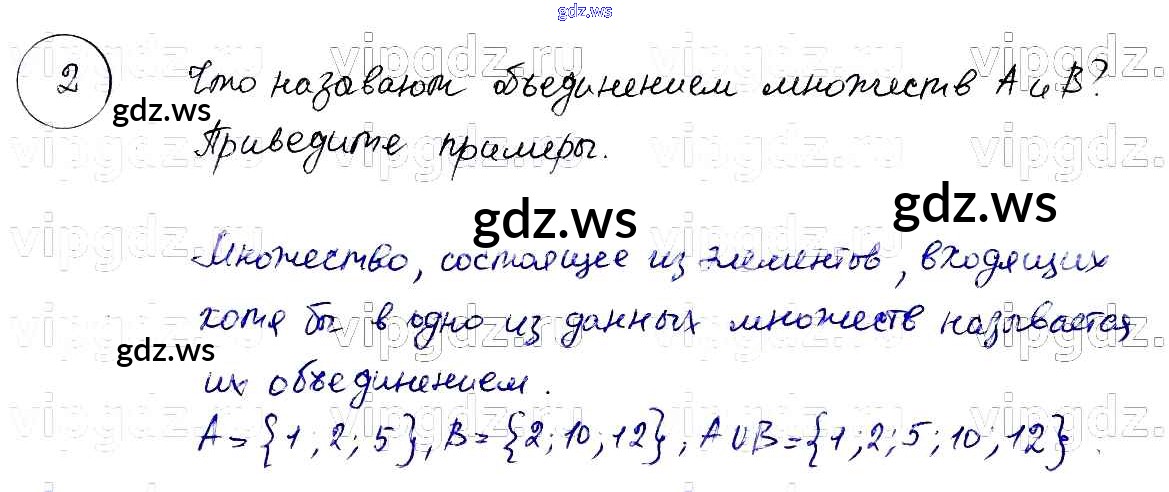 gdz.ws
2 Что называют объединением множеств A и B?
gdz.ws
Приведите примеры.
gdz.ws gdz.ws
Множество, состоящее из элементов, входящих
хотя бы в одно из данных множеств называется
gdz.ws
их объединением.
A = {1; 2; 5}, B = {2; 10; 12}; A ∪ B = {1; 2; 5; 10; 12}.